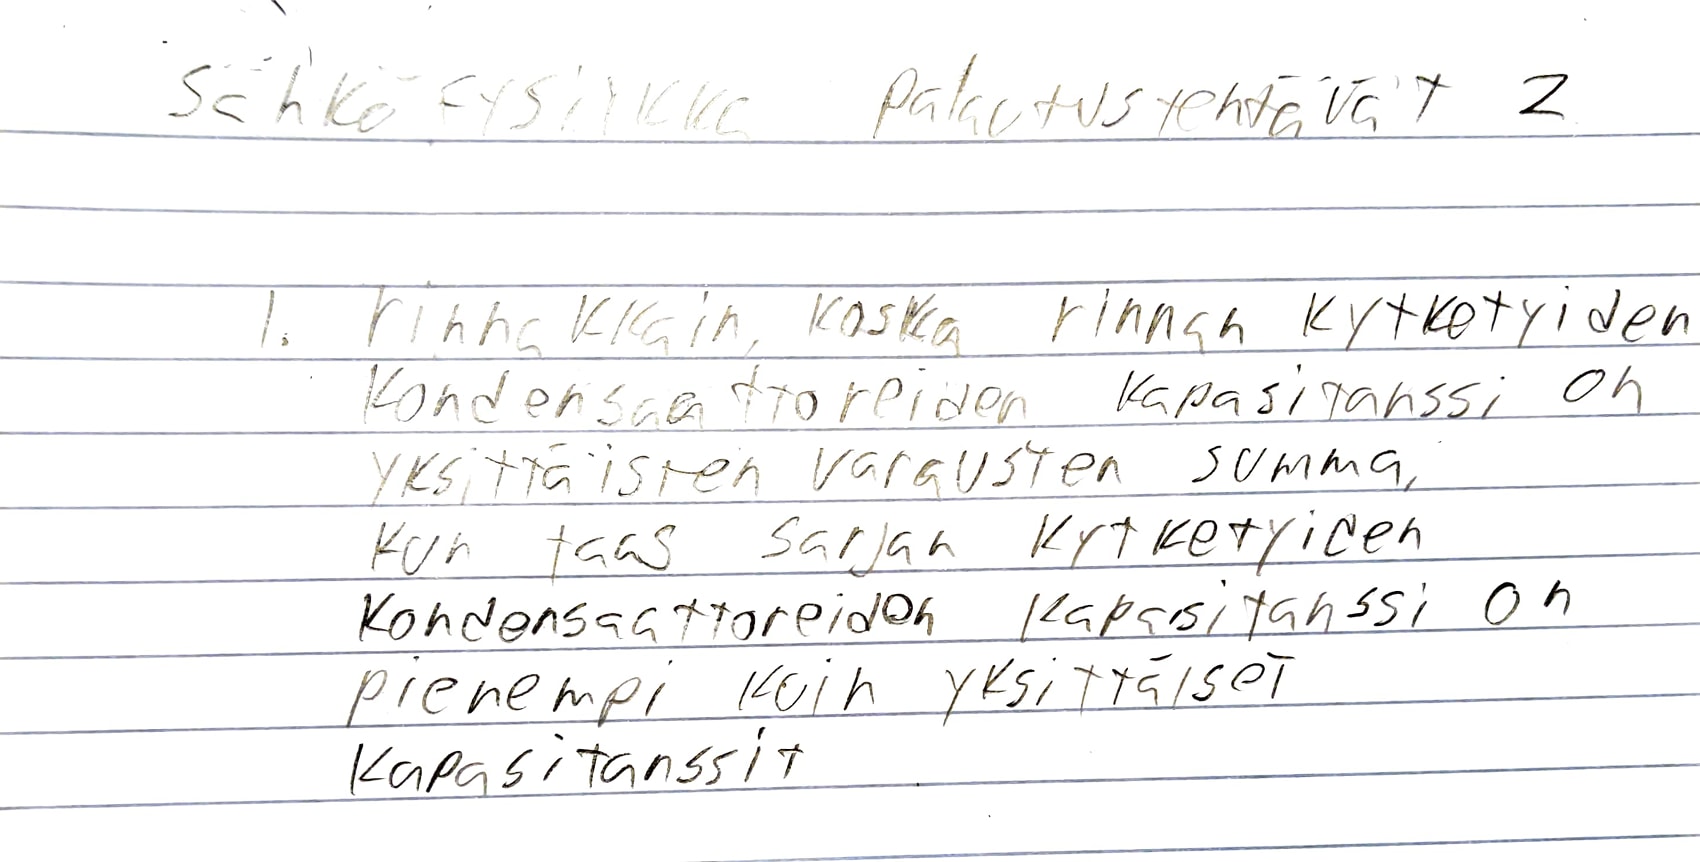 Sähköfysiikka palautustehtävät 2
1. rinnakkain, koska rinnan kytketyiden
kondensaattoreiden kapasitanssi on
yksittäisten varausten summa,
kun taas sarjan kytketyiden
kondensaattoreiden kapasitanssi on
pienempi kuin yksittäiset
kapasitanssit